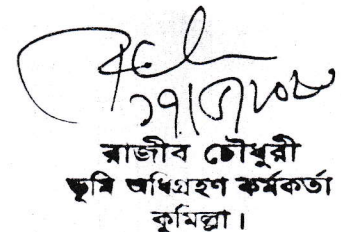 রাজীব চৌধুরী
ভূমি অধিগ্রহণ কর্মকর্তা
কুমিল্লা।